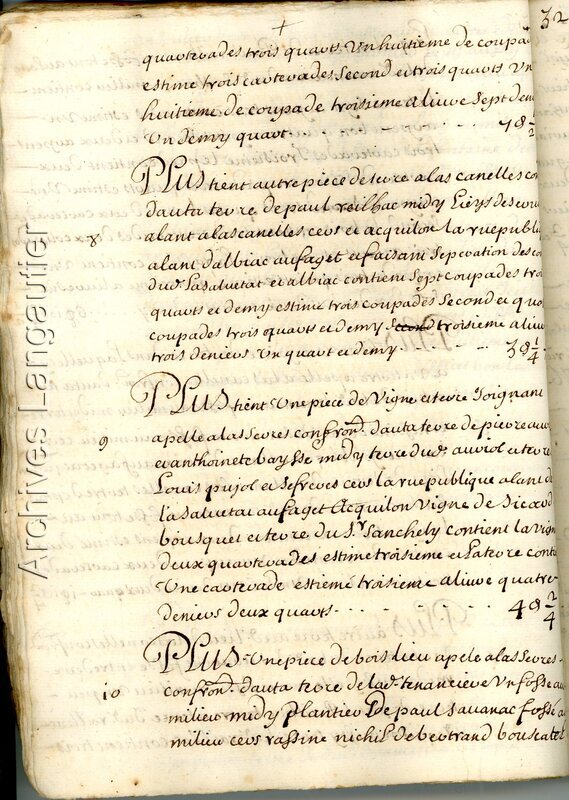 32
quartevades trois quarts Un huitieme de coupad
estime trois cartevades Second et trois quarts Un
huitieme de coupade troisieme alivre Sept den
Un demy quart
8
PLUS tient autre piece de terre a las canelles con
dauta terre de paul veilhac midy
alant a las canelles, cers et acquilon la rue publi
alant dalbiac au faget et faisant Seperation des
du la Salvetat et albiac contient Sept Coupades tro
quarts et demy estime trois coupades Second et qua
coupades trois quarts et demy troisieme alivre
trois deniers Un quart et demy 3 1/4
9
PLUS tient Une piece de Vigne et terre Joignant
apelle a las Serres confron. dauta terre de pierre
et anthoinete baysse midy terre dud. auriol et terre
Louis pujol et Ses freres cers la rue publique alant de
la Salvetat au faget Acquilon Vigne de Sicard
bousquet et terre du Sr. Sanchely contient la Vign
deux quartevades estime troisieme et la terre cont
Une cartevade estieme troisieme alivre quatre
deniers deux quarts 4 2/4
10
PLUS Une piece de bois lieu apele a las Serres
confron. dauta terre de lad. tenanciere Un fosse au
milieu midy plantier de paul Savanac fosse a
milieu cers rassine nichil de bertrand bouscatel
Archives Langautier